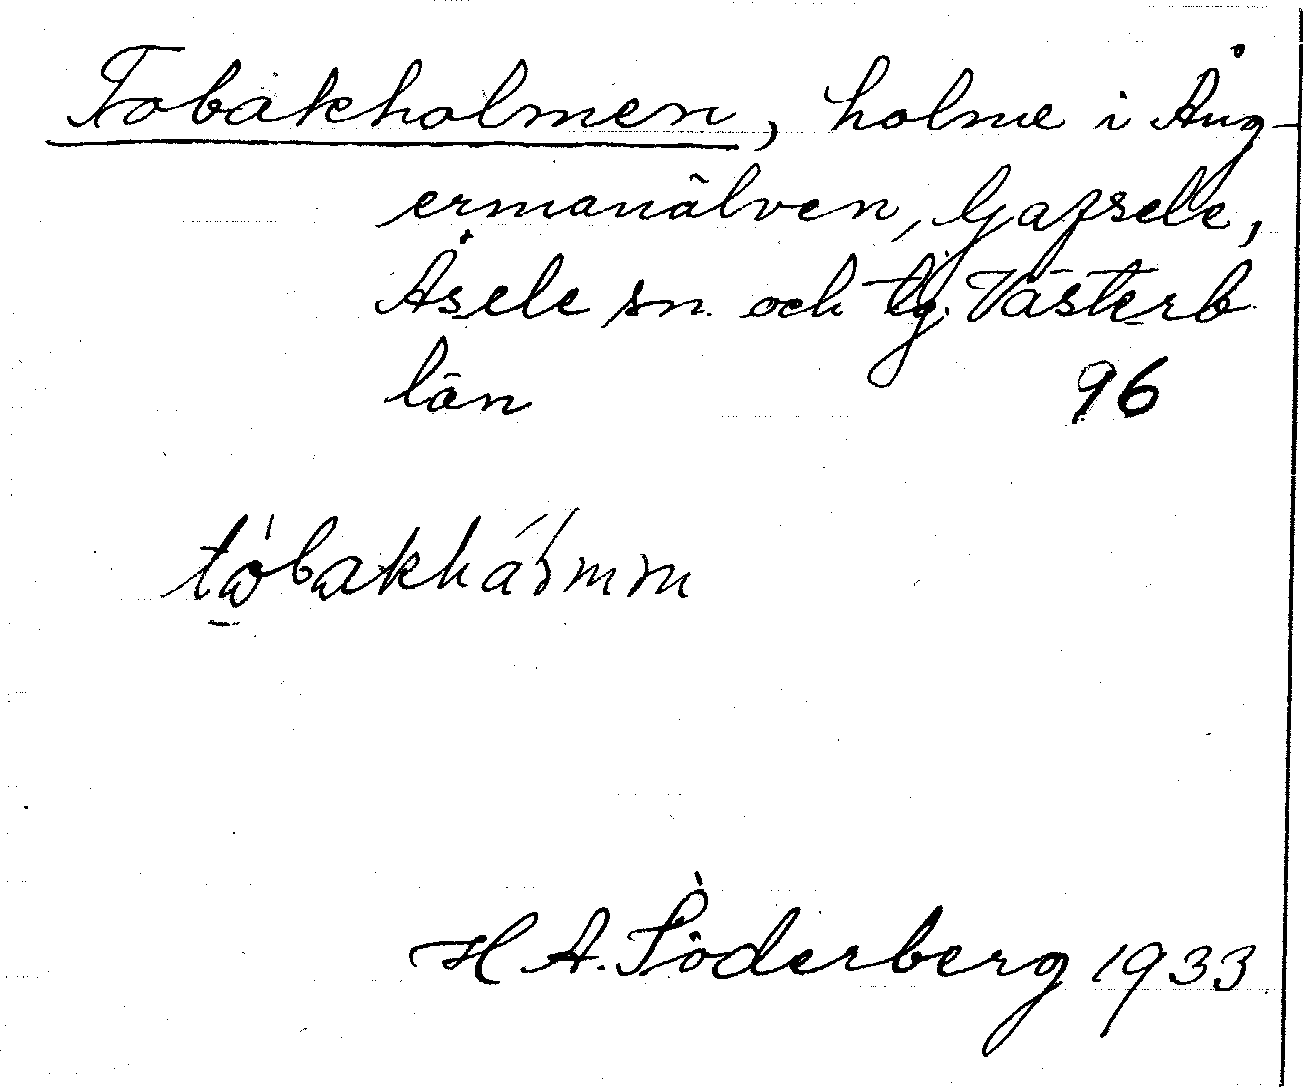 Tobakholmen, holme i Ång-
ermanälven, Gafsele,
Åsele sn. och tg. Västerb
län 96
tobakhámm
H A. Söderberg 1933